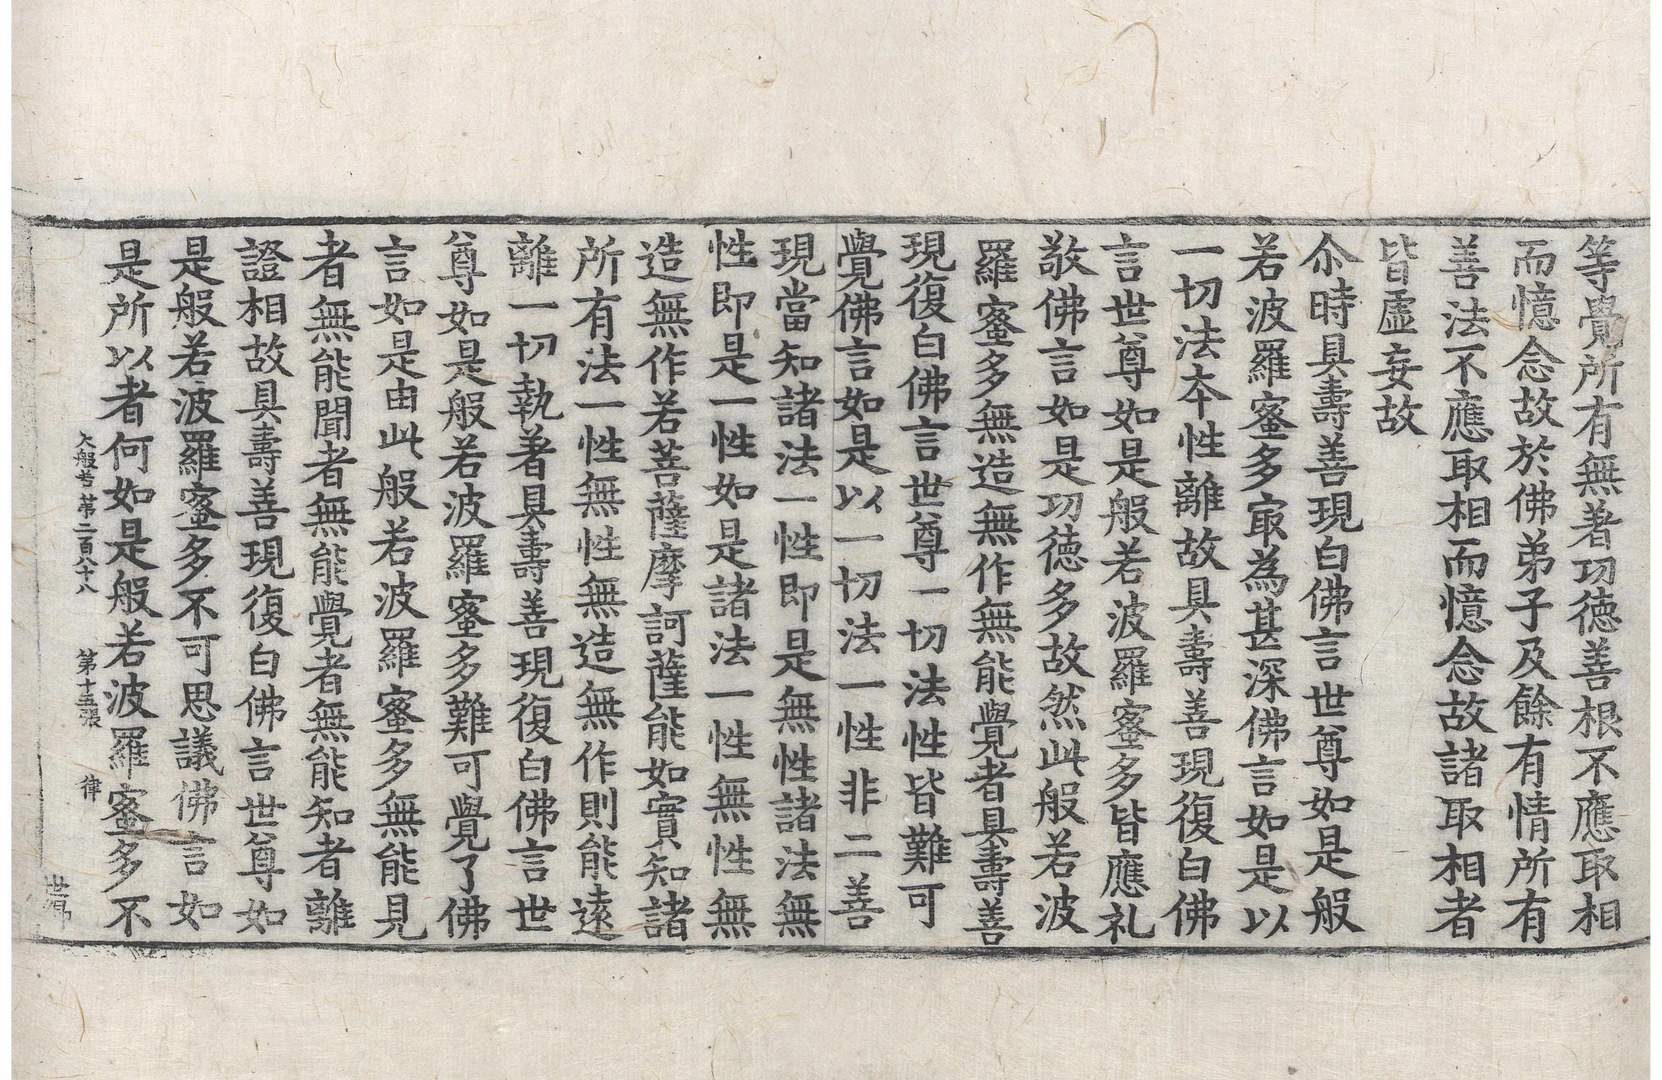 等覺所有無著功德善根不應取相
而憶念故於佛弟子及餘有情所有
善法不應取相而憶念故諸取相者
皆虛妄故
尒時具壽善現白佛言世尊如是般
若波羅蜜多㝡為甚深佛言如是以
一切法本性離故具壽善現復白佛
言世尊如是般若波羅蜜多皆應礼
敬佛言如是功德多故然此般若波
羅蜜多無造無作無能覺者具壽善
現復白佛言世尊一切法性皆難可
覺佛言如是以一切法一性非二善
現當知諸法一性即是無性諸法無
性即是一性如是諸法一性無性無
造無作若菩薩摩訶薩能如實知諸
所有法一性無性無造無作則能遠
離一切執著具壽善現復白佛言世
尊如是般若波羅蜜多難可覺了佛
言如是由此般若波羅蜜多無能見
者無能聞者無能覺者無能知者離
證相故具壽善現復白佛言世尊如
是般若波羅蜜多不可思議佛言如
是所以者何如是般若波羅蜜多不
大般若第二百八十八 第十五張 律